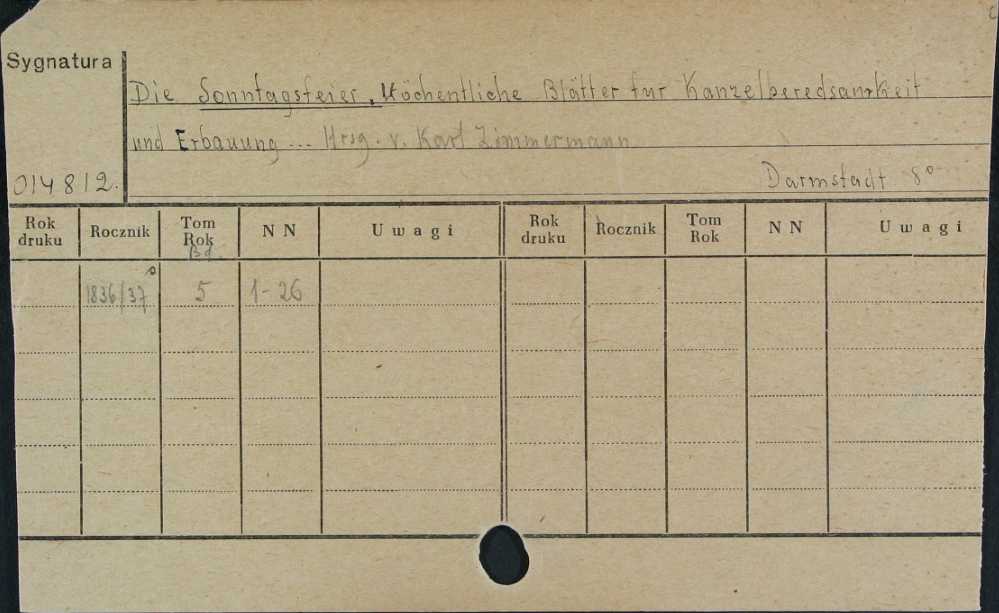 Sygnatura
Die Sonntagsfeier. Wöchentliche Blätter fur Kanzelberedsamkeit
und Erbauung ... Hrsg. v. Karl Zimmermann
014812. Darmstadt 8°
Rok druku Rocznik Tom Rok NN Uwagi Rok druku Rocznik Tom Rok NN Uwagi
Bd.
1836/37 5 1-26